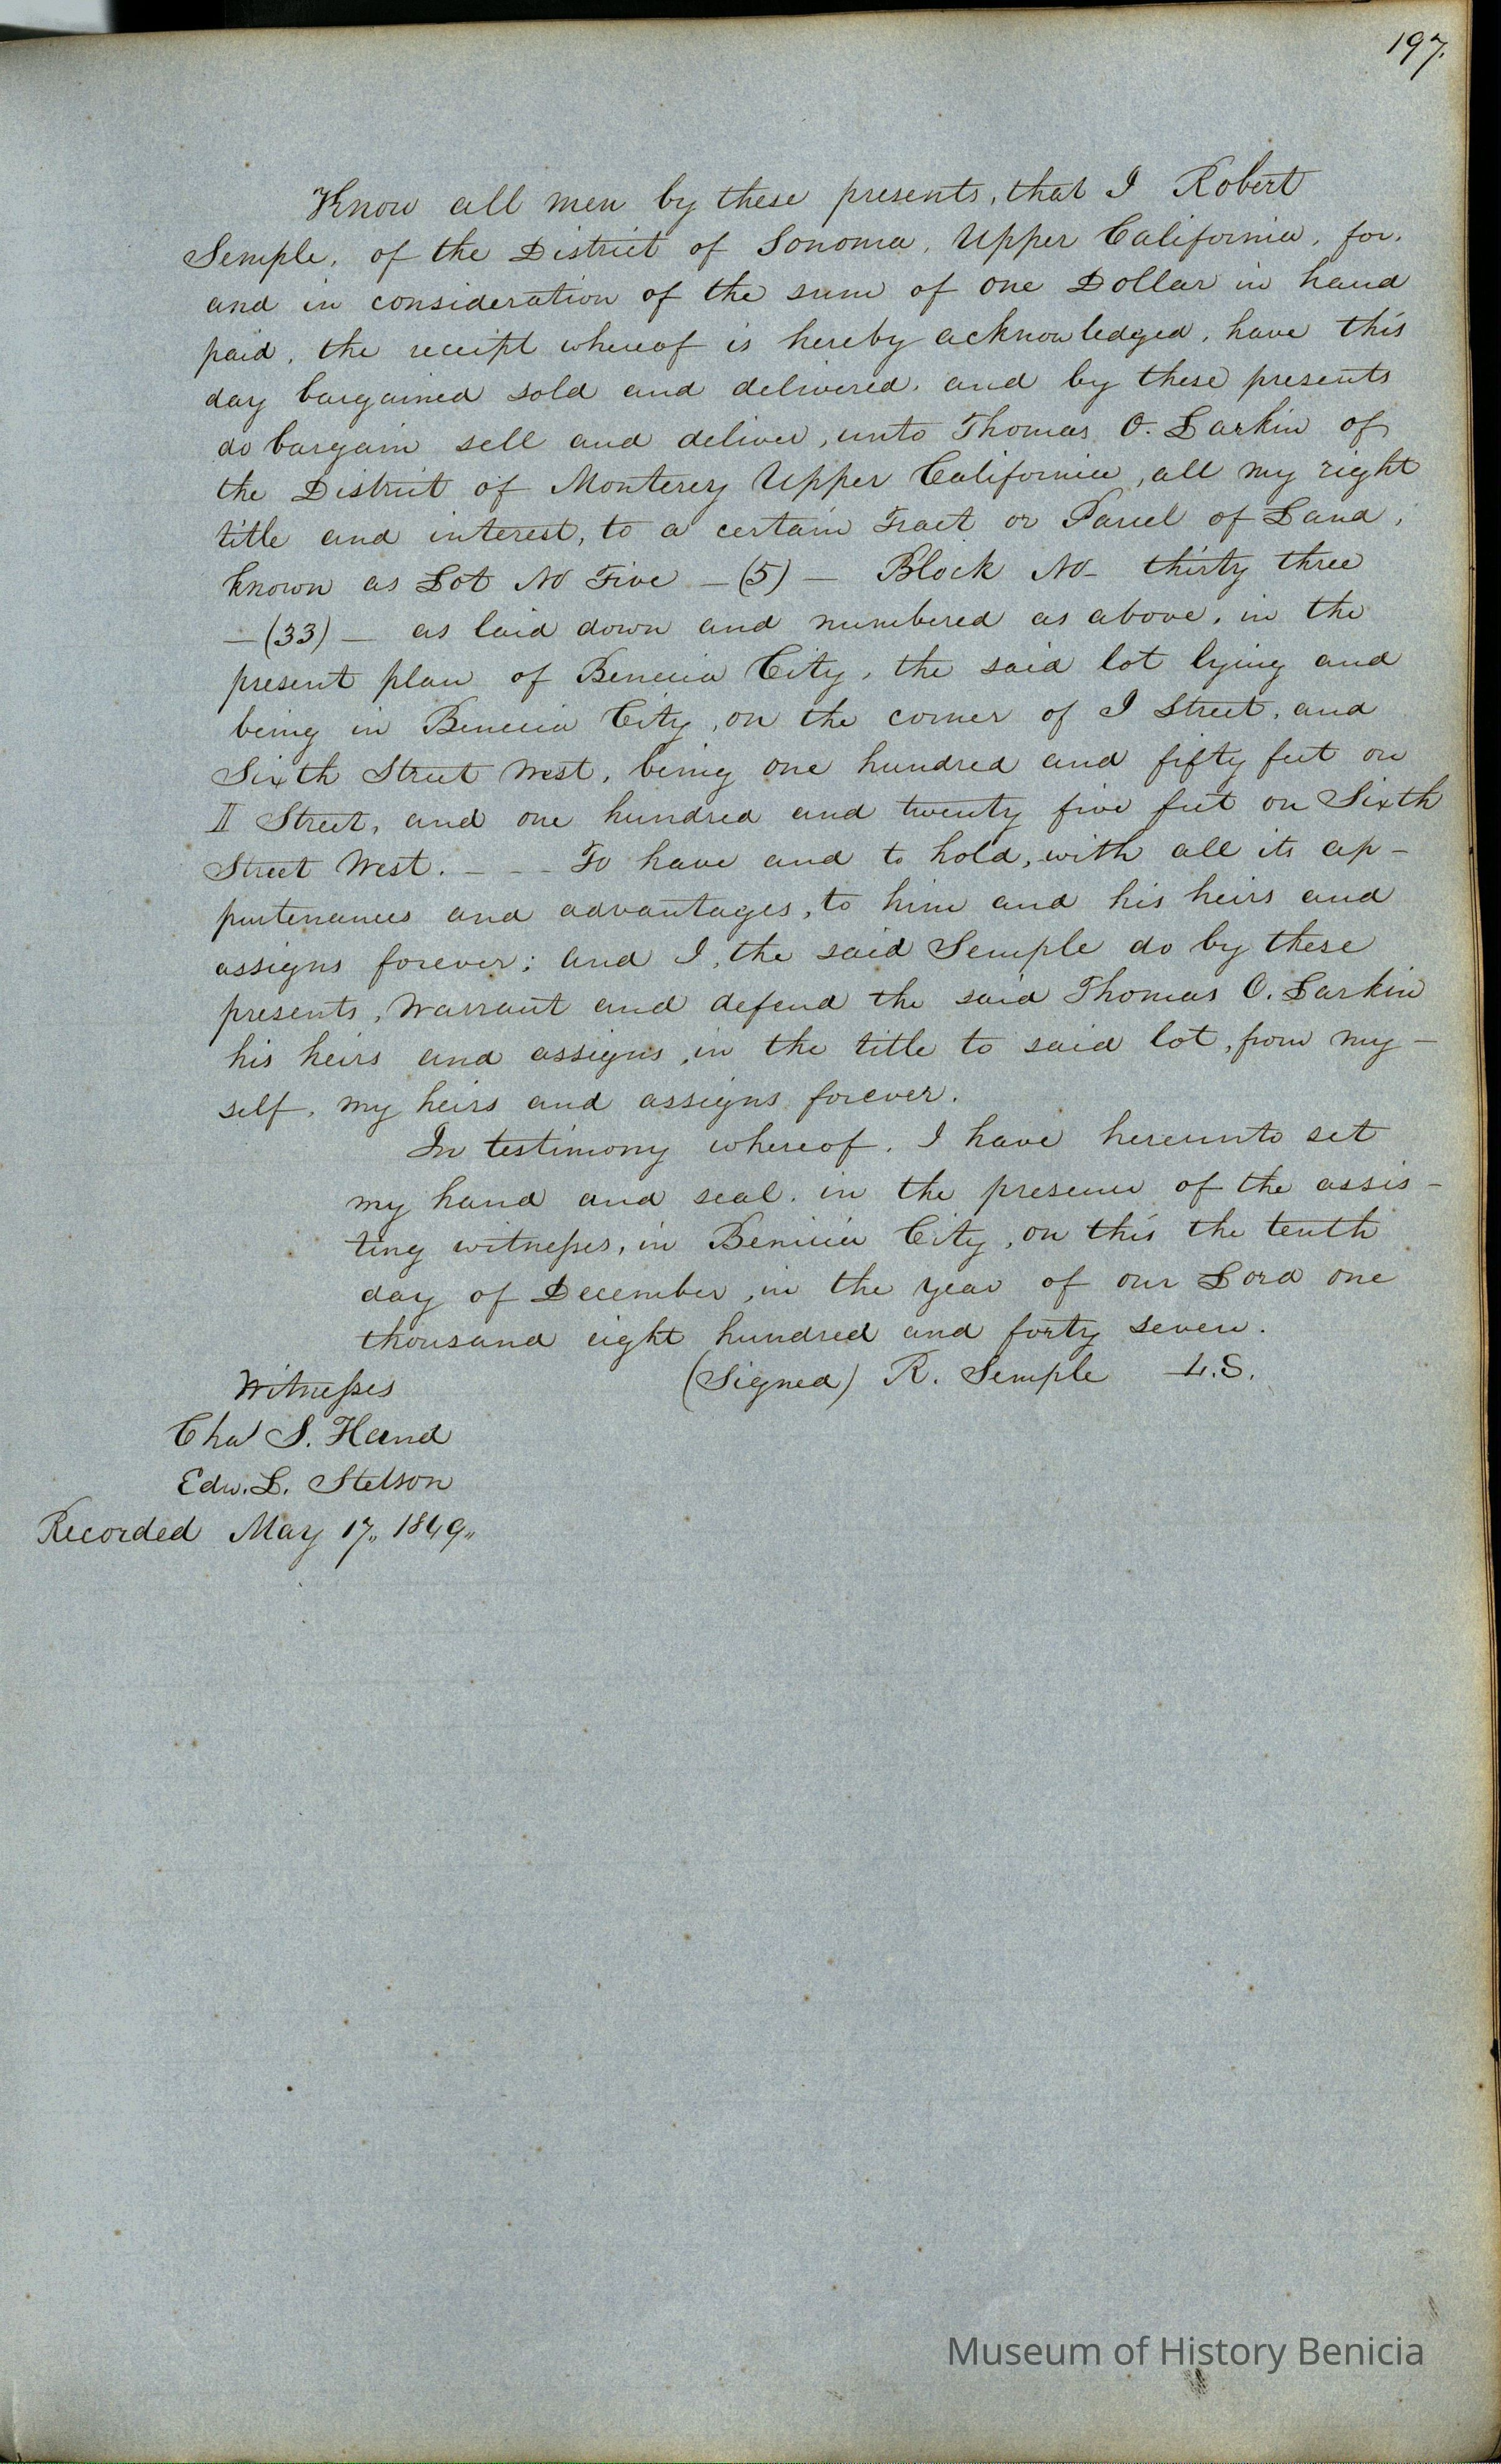 197.
Know all men by these presents, that I Robert
Semple, of the District of Sonoma, Upper California, for,
and in consideration of the sum of one Dollar in hand
paid, the receipt whereof is hereby acknowledged, have this
day bargained sold and delivered, and by these presents
do bargain sell and deliver, unto Thomas O. Larkin of
the District of Monterey Upper California, all my right
title and interest, to a certain Tract or Parcel of Land,
known as Lot No Five - (5) - Block No- thirty three
- (33) - as laid down and numbered as above, in the
present plan of Benicia City, the said lot lying and
being in Benicia City, on the corner of I Street, and
Sixth Street West, being one hundred and fifty feet on
I Street, and one hundred and twenty five feet on Sixth
Street West. - - - To have and to hold, with all its ap-
purtenances and advantages, to him and his heirs and
assigns forever; and I, the said Semple do by these
presents, Warrant and defend the said Thomas O. Larkin
his heirs and assigns, in the title to said lot, from my-
self, my heirs and assigns forever.
In testimony whereof, I have hereunto set
my hand and seal, in the presence of the assis-
ting witnesses, in Benicia City, on this the tenth
day of December, in the year of our Lord one
thousand eight hundred and forty seven.
(Signed) R. Semple L.S.
Witnesses
Chas S. Hand
Edw. L. Stetson
Recorded May 17,, 1849,,
Museum of History Benicia